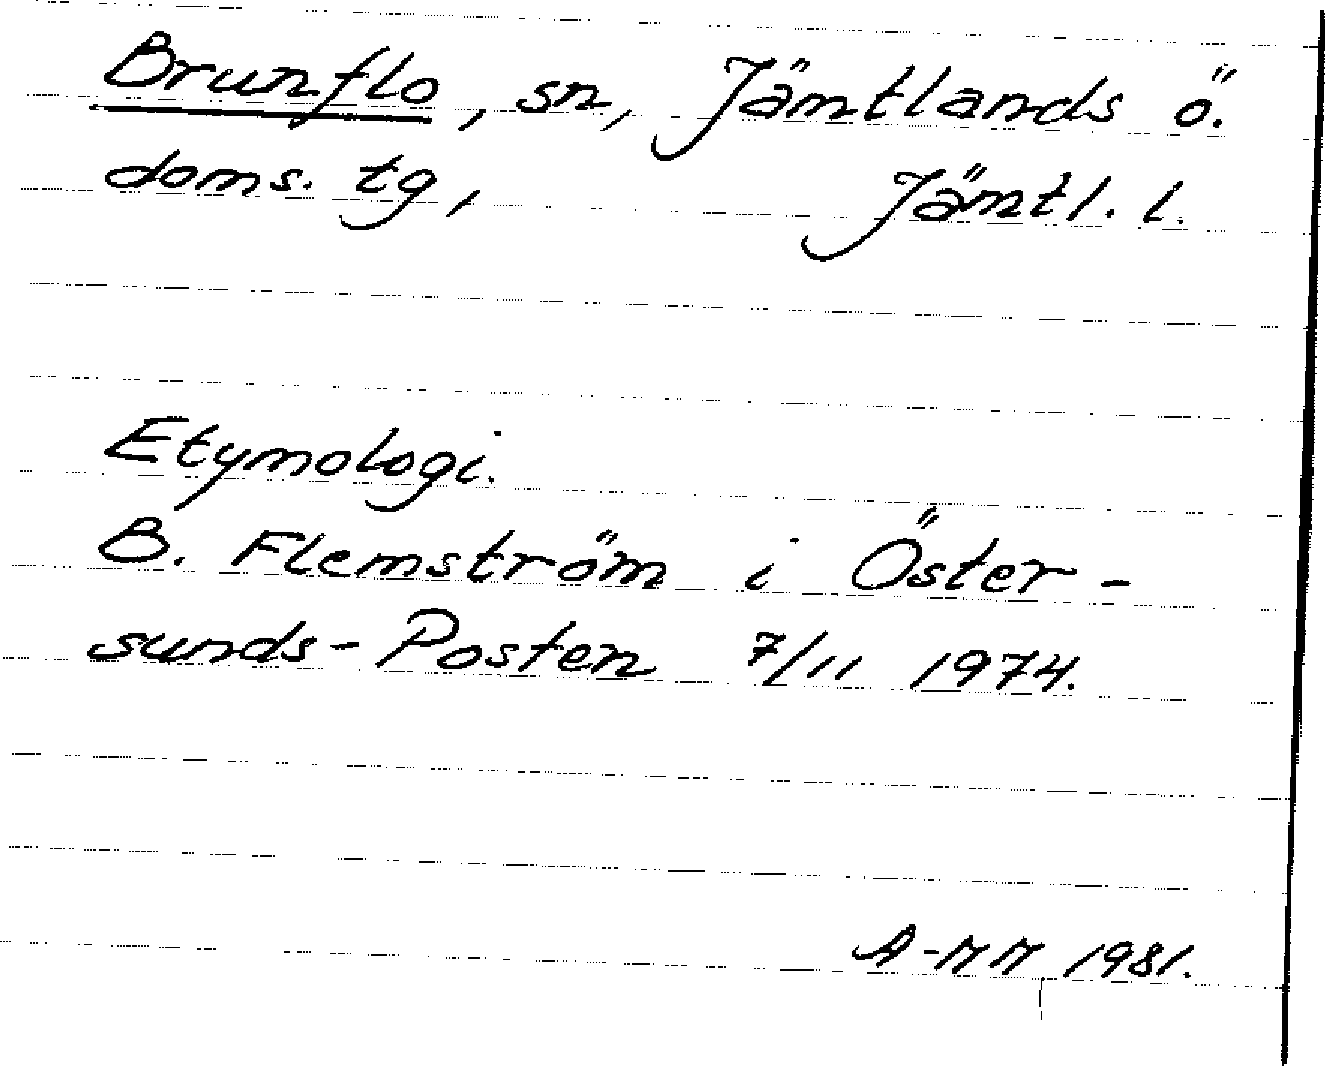 Brunflo, sn, Jämtlands ö.
doms. tg, Jämtl. l.
Etymologi.
B. Flemström i Öster-
sunds-Posten 7/11 1974.
A-MM 1981.